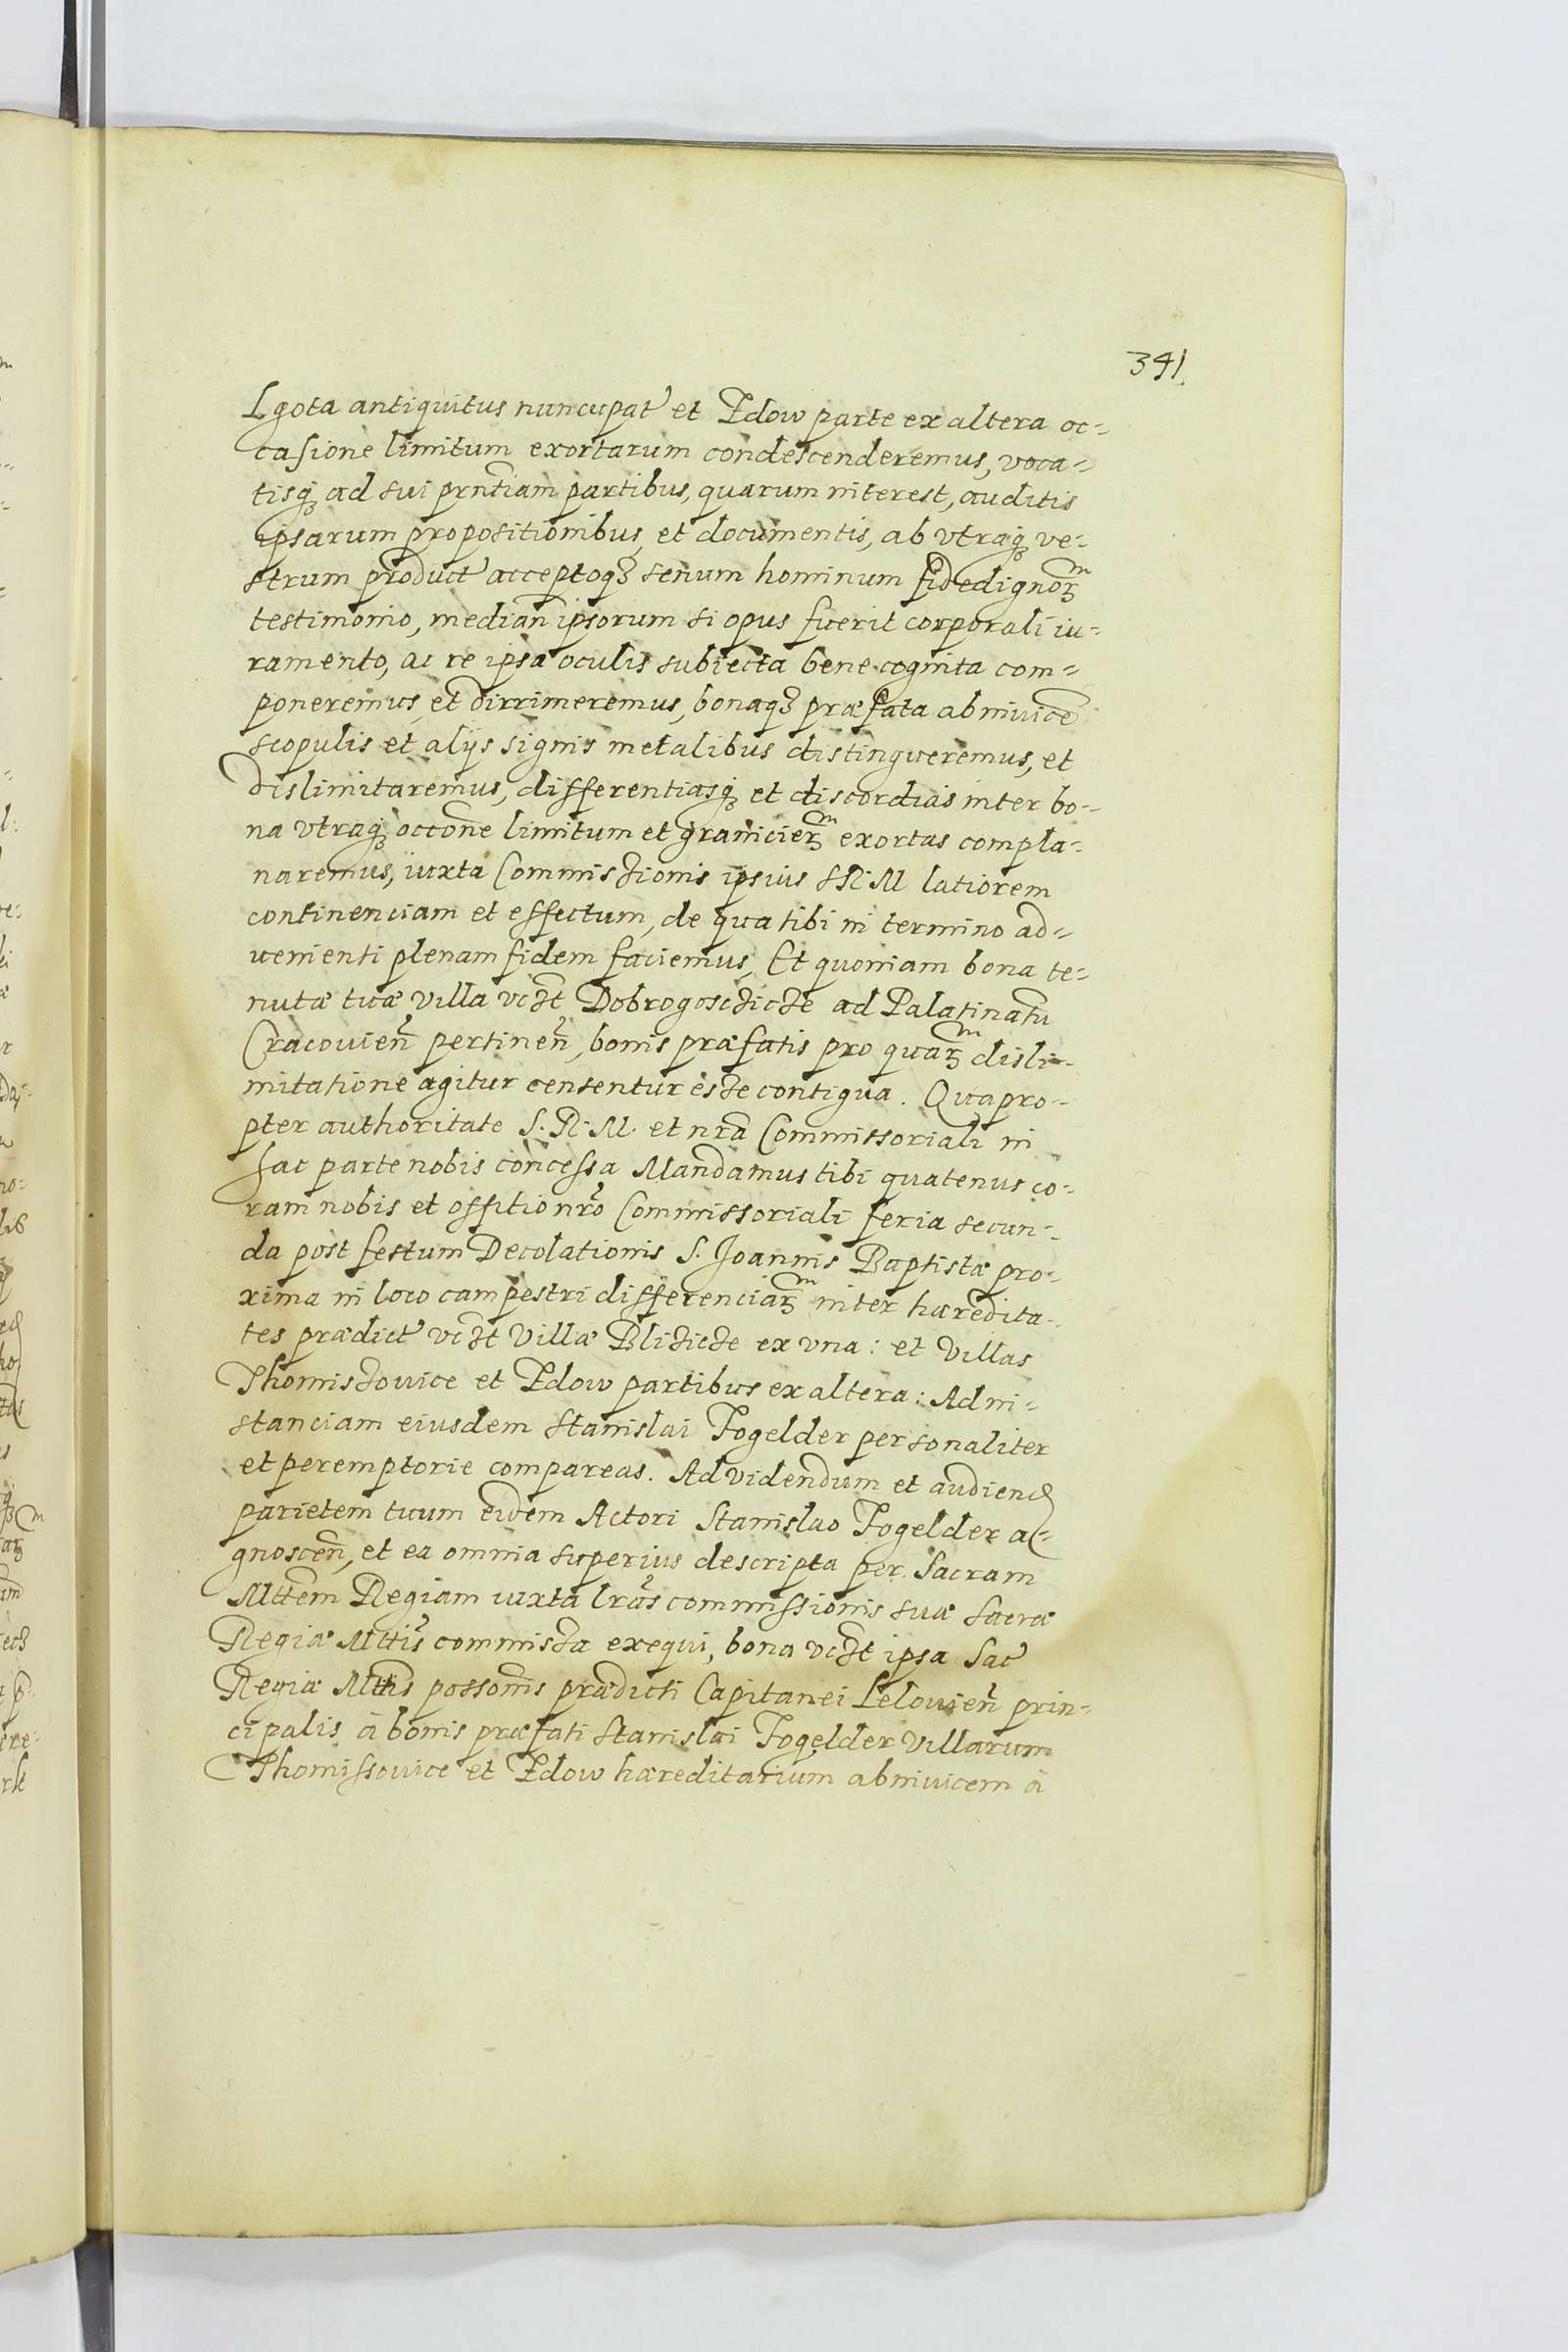 341.
Lgota antiquitus nuncupat et Zdow parte ex altera oc-
casione limitum exortarum condescenderemus, voca-
tisq ad sui prntiam partibus, quarum interest, auditis
ipsarum propositionibus, et documentis, ab vtraq ve-
strum product acceptoq senum hominum fidedignorm
testimonio, median ipsorum si opus fuerit corporali iu-
ramento, ac re ipsa oculis subiecta bene cognita com-
poneremus, et dirrimeremus, bonaq præfata abinuice
scopulis et alijs signis metalibus distingueremus, et
dislimitaremus, differentiasq et discordias inter bo-
na vtraq occone limitum et granicierm exortas compla-
naremus, iuxta Commissionis ipsius S R. M latiorem
continenciam et effectum, de qua tibi in termino ad-
uenienti plenam fidem faciemus, Et quoniam bona te-
nutæ tuæ villa vczt Dobrogoszcze ad Palatinatu
Cracouien pertinen, bonis præfatis pro quarm disli-
mitatione agitur censentur esse contigua. Quapro-
pter authoritate S. R. M. et nra Commissoriali in
hac parte nobis concessa Mandamus tibi quatenus co-
ram nobis et offitio nro Commissoriali feria secun-
da post festum Decolationis S. Joannis Baptistæ pro-
xima in loco campestri differenciarm inter hæredita-
tes prædict vczt Villæ Blizicze ex vna: et Villas
Thomiszowice et Zdow partibus ex altera: Ad in-
stanciam eiusdem Stanislai Fogelder personaliter
et peremptorie compareas. Ad videndum et audiend
parietem tuum eidem Actori Stanislao Fogelder a-
gnoscen, et ea omnia superius descripta per Sacram
Mttem Regiam iuxta lras commissionis suæ Sacræ
Regiæ Mttis commissa exequi, bona vczt ipsa Sac
Regiæ Mttis possonis prædicti Capitanei Lelouien prin-
cipalis à bonis præfati Stanislai Fogelder Villarum
Thomissowice et Zdow hæreditarium abinuicem à